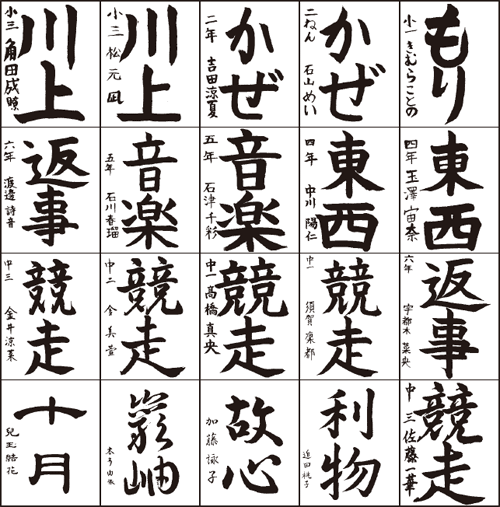 もり
小一 きむらことの
かぜ
二ねん 石山 めい
かぜ
二年 吉田涼夏
川上
小三 松元 凪
川上
小三 角田成暸
東西
四年 玉澤宙奈
東西
四年 中川 陽仁
音楽
五年 石津千彩
音楽
五年 石川春瑠
返事
六年 渡邉詩音
返事
六年 宇都木 菜央
競走
中一 須賀 凛都
競走
中一 高橋 真央
競走
中二 今 美萱
競走
中三 金井涼菜
競走
中三 佐藤一華
利物
近田
故心
加藤 詠子
巖岫
十月
兒玉 皓花